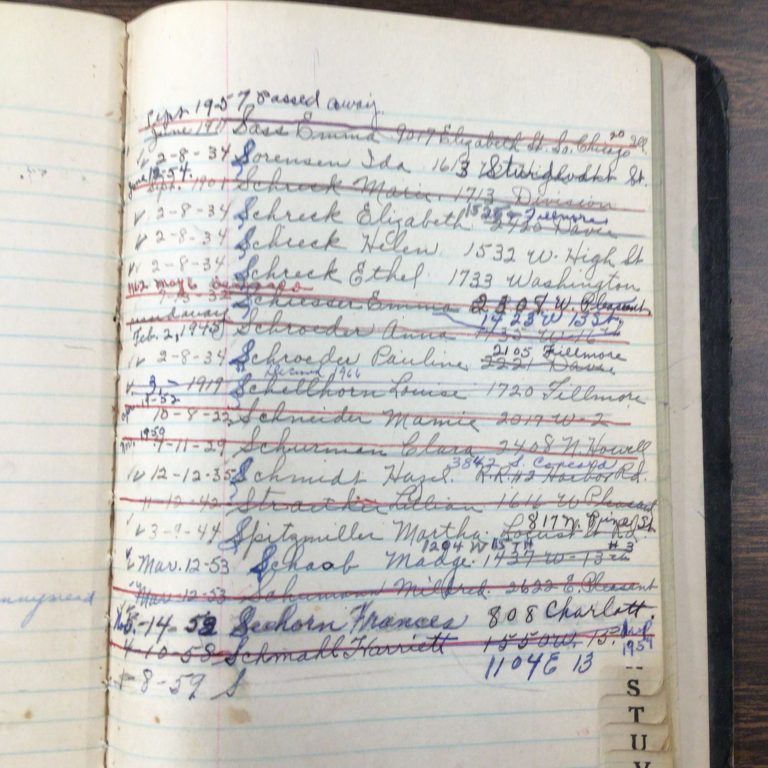 Sept 19-57 Passed away.
June 1911 Sass Emma 9017 Elizabeth St. So. Chicago 20 Ill.
v 2-8-34 Sorensen Ida 1613 Sturghodht St.
June 12-54
Sept. 1901 Schreck Marie 1713 Division
1526 Fillmore
v 2-8-34 Schreck Elizabeth 2420 Davie
v 2-8-34 Schreck Helen 1532 W. High St
v 2-8-34 Schreck Ethel 1733 Washington
1962 May 6
Schiesser Emma 2308 W Pleasant
1423 W 13 St
Feb. 2, 1945 Schroeder Anna 1135 W-16th
2105 Fillmore
v 2-8-34 Schroeder Pauline 2221 Davie
1966
1919 Schellhorn Louise 1720 Fillmore
19-52
10-8-22 Schneider Mamie 2017 W-2
1950
9-11-29 Schurman Clara 2408 N. Howell
3842 S. Concord
v 12-12-35 Schmidt Hazel. R.R. #2 Harbor Rd.
11-12-42 Lillian 1616 W Pleasant
817 N. Pine St
v 3-9-44 Spitzmiller Martha. Locust Rd.
1204 W 15TH #3
v Mar. 12-53 Schaab Madge. 1427 W-13th
Mar. 12-53 Schumann Mildred. 2622 E. Pleasant
-14-52 Seehorn Frances 808 Charlott.
4-10-58 Schmahl Harriett 1550 W. 15.
1959
1104 E 13
8-59 S
S
T
U
V